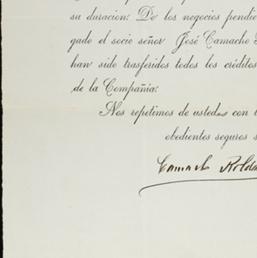 su duracion: De los negocios pendie
gado el socio señor José Camacho
han sido trasferidos todos los créditos
de la Compañia:
Nos repetimos de ustedes con
obedientes seguros s
Camacho Roldá